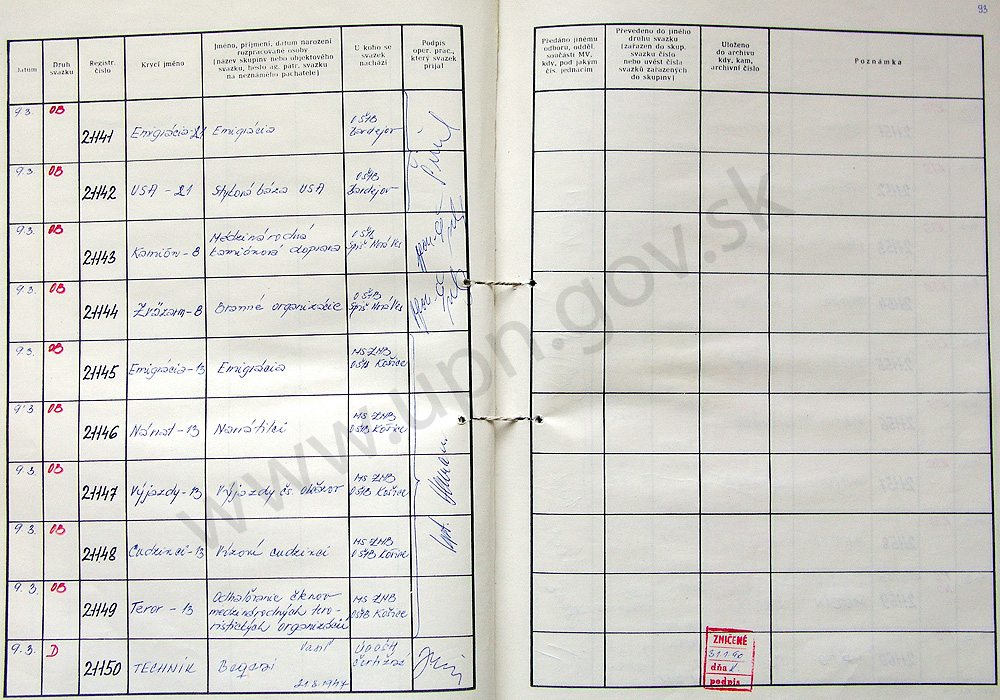 93
Datum
Druh
svazku
Registr.
číslo
Krycí jméno
Jméno, příjmení, datum narození
rozpracované osoby
(název skupiny nebo objektového
svazku, heslo ag. pátr. svazku
na neznámého pachatele)
U koho se
svazek
nachází
Podpis
oper. prac.,
který svazek
přijal
Předáno jinému
odboru, odděl.
součásti MV,
kdy, pod jakým
čís. jednacím
Převedeno do jiného
druhu svazku
(zařazen do skup.
svazku číslo
nebo uvést čísla
svazků zařazených
do skupiny)
Uloženo
do archivu
kdy, kam,
archivní číslo
Poznámka
9.3. OB 21141 Emigrácia-21 Emigrácia OŠtB Bardejov
9.3. OB 21142 USA - 21 Styková báza USA OŠtB Bardejov
9.3. OB 21143 Kamión-8 Medzinárodná kamiónová doprava OŠtB Spiš. Nová Ves
9.3. OB 21144 Zväzarm-8 Branné organizácie OŠtB Spiš. Nová Ves
9.3. OB 21145 Emigrácia-13 Emigrácia MS ZNB OŠtB Košice
9.3. OB 21146 Nánat-13 MS ZNB OŠtB Košice
9.3. OB 21147 Výjazdy-13 Výjazdy čs. občanov MS ZNB OŠtB Košice
9.3. OB 21148 Cudzinci-13 Vízoví cudzinci MS ZNB OŠtB Košice
9.3. OB 21149 Teror - 13 Odhaľovanie členov medzinárodných teroristických organizácií MS ZNB OŠtB Košice
9.3. D 21150 TECHNIK 21.8.1947
ZNIČENÉ
dňa
podpis
www.upn.gov.sk